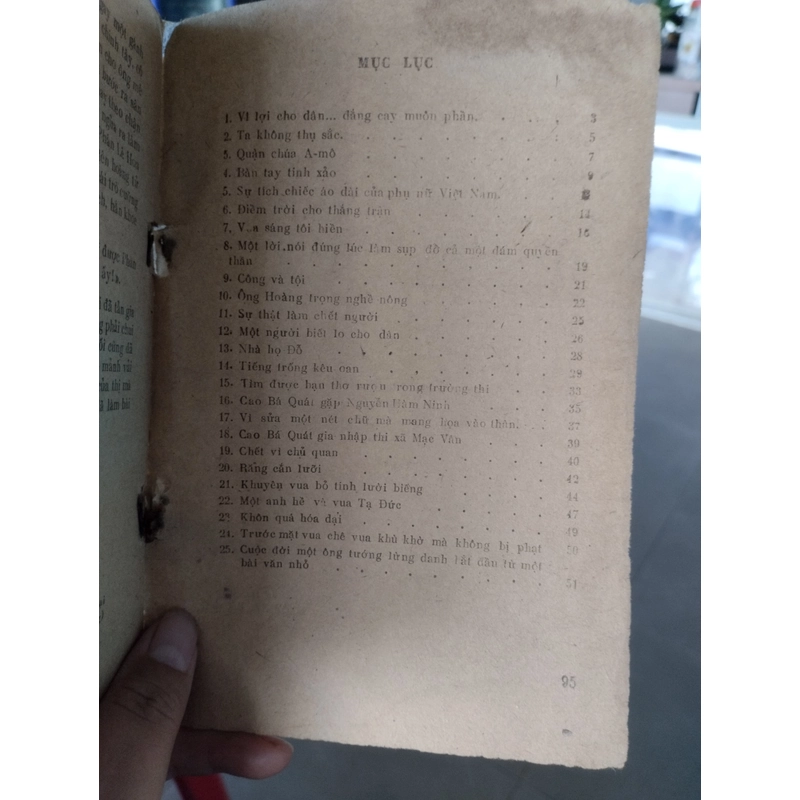 một gánh
chỉnh tây, có
cho ông mê
bước ra sân
theo chân
ngựa ra làm
hoàng tử
trò cường
ch, hắn khoe
được
ấy!».
đã tân gia
phải chơi
cũng đã
mãnh
thị mi
ã làm bài
MỤC LỤC
1. Vì lợi cho dân... đắng cay muôn phần. 3
2. Ta không thụ sắc. 5
3. Quận chúa A-mô 7
4. Bàn tay tinh xảo 9
5. Sự tích chiếc áo dài của phụ nữ Việt Nam.
6. Điềm trời cho thằng trận 14
7. V.a sáng tôi hiền 16
8. Một lời nói đúng lúc làm sụp đồ cả một đám quyền
thần 19
9. Công và tội 21
10. Ông Hoàng trọng nghề nông 22
11. Sự thật làm chết người 25
12. Một người biết lo cho dân 26
13. Nhà họ Đỗ 28
14. Tiếng trống kêu oan 29
15. Tìm được bạn thơ rượu trong trường thi 33
16. Cao Bá Quát gặp Nguyễn Hàm Ninh 35
17. Vì sửa một nét chữ mà mang họa vào thân. 37
18. Cao Bá Quát gia nhập thi xã Mạc Vân 39
19. Chết vì chủ quan 40
20. Răng cắn lưỡi 42
21. Khuyên vua bỏ tính lười biếng 44
22. Một anh hề và vua Tự Đức 47
23. Khôn quá hóa dại 49
24. Trước mặt vua chê vua khù khờ mà không bị phạt 50
25. Cuộc đời một ông tướng lừng danh bắt đầu từ một
bài văn nhỏ 51
95